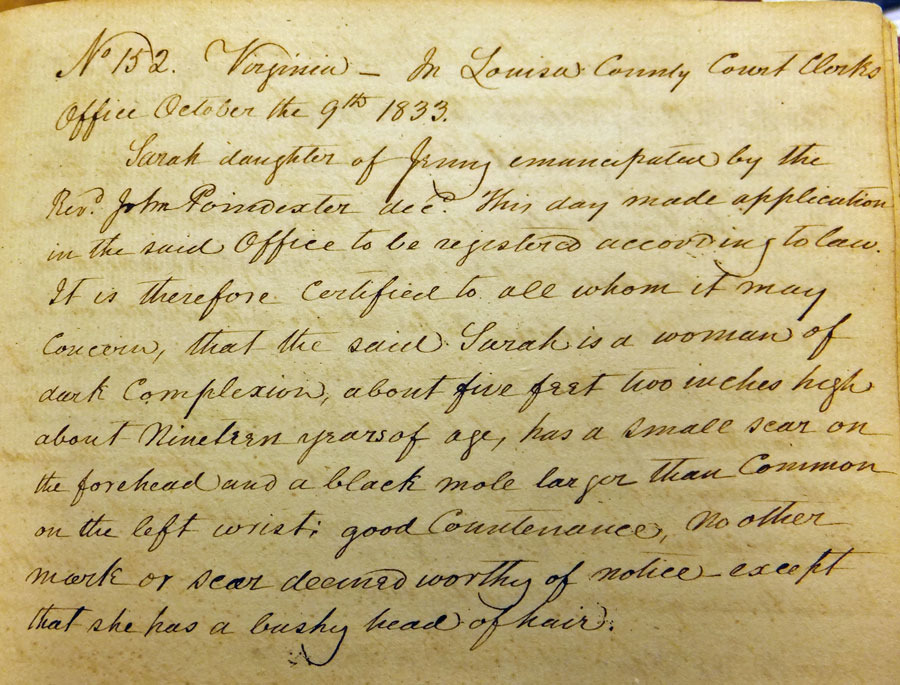 No 152. Virginia – In Louisa County Court Clerks
Office October the 9th 1833.
Sarah daughter of Jenny emancipated by the
Revd. John Poindexter decd. This day made application
in the said Office to be registered according to law.
It is therefore Certified to all whom it may
Concern, that the said Sarah is a woman of
dark Complexion, about five feet two inches high
about Nineteen years of age, has a small scar on
the forehead and a black mole larger than Common
on the left wrist; good Countenance, No other
mark or scar deemed worthy of notice – except
that she has a bushy head of hair.